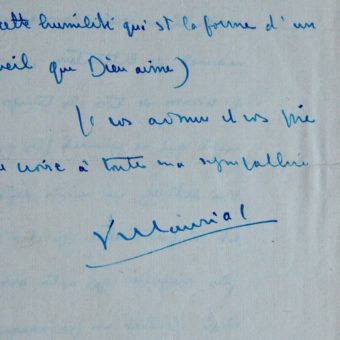 cette humilité qui est la forme d'un
ueil que Dieu aime)
Je vos admire et vos prie
e croire à toute ma sympathie